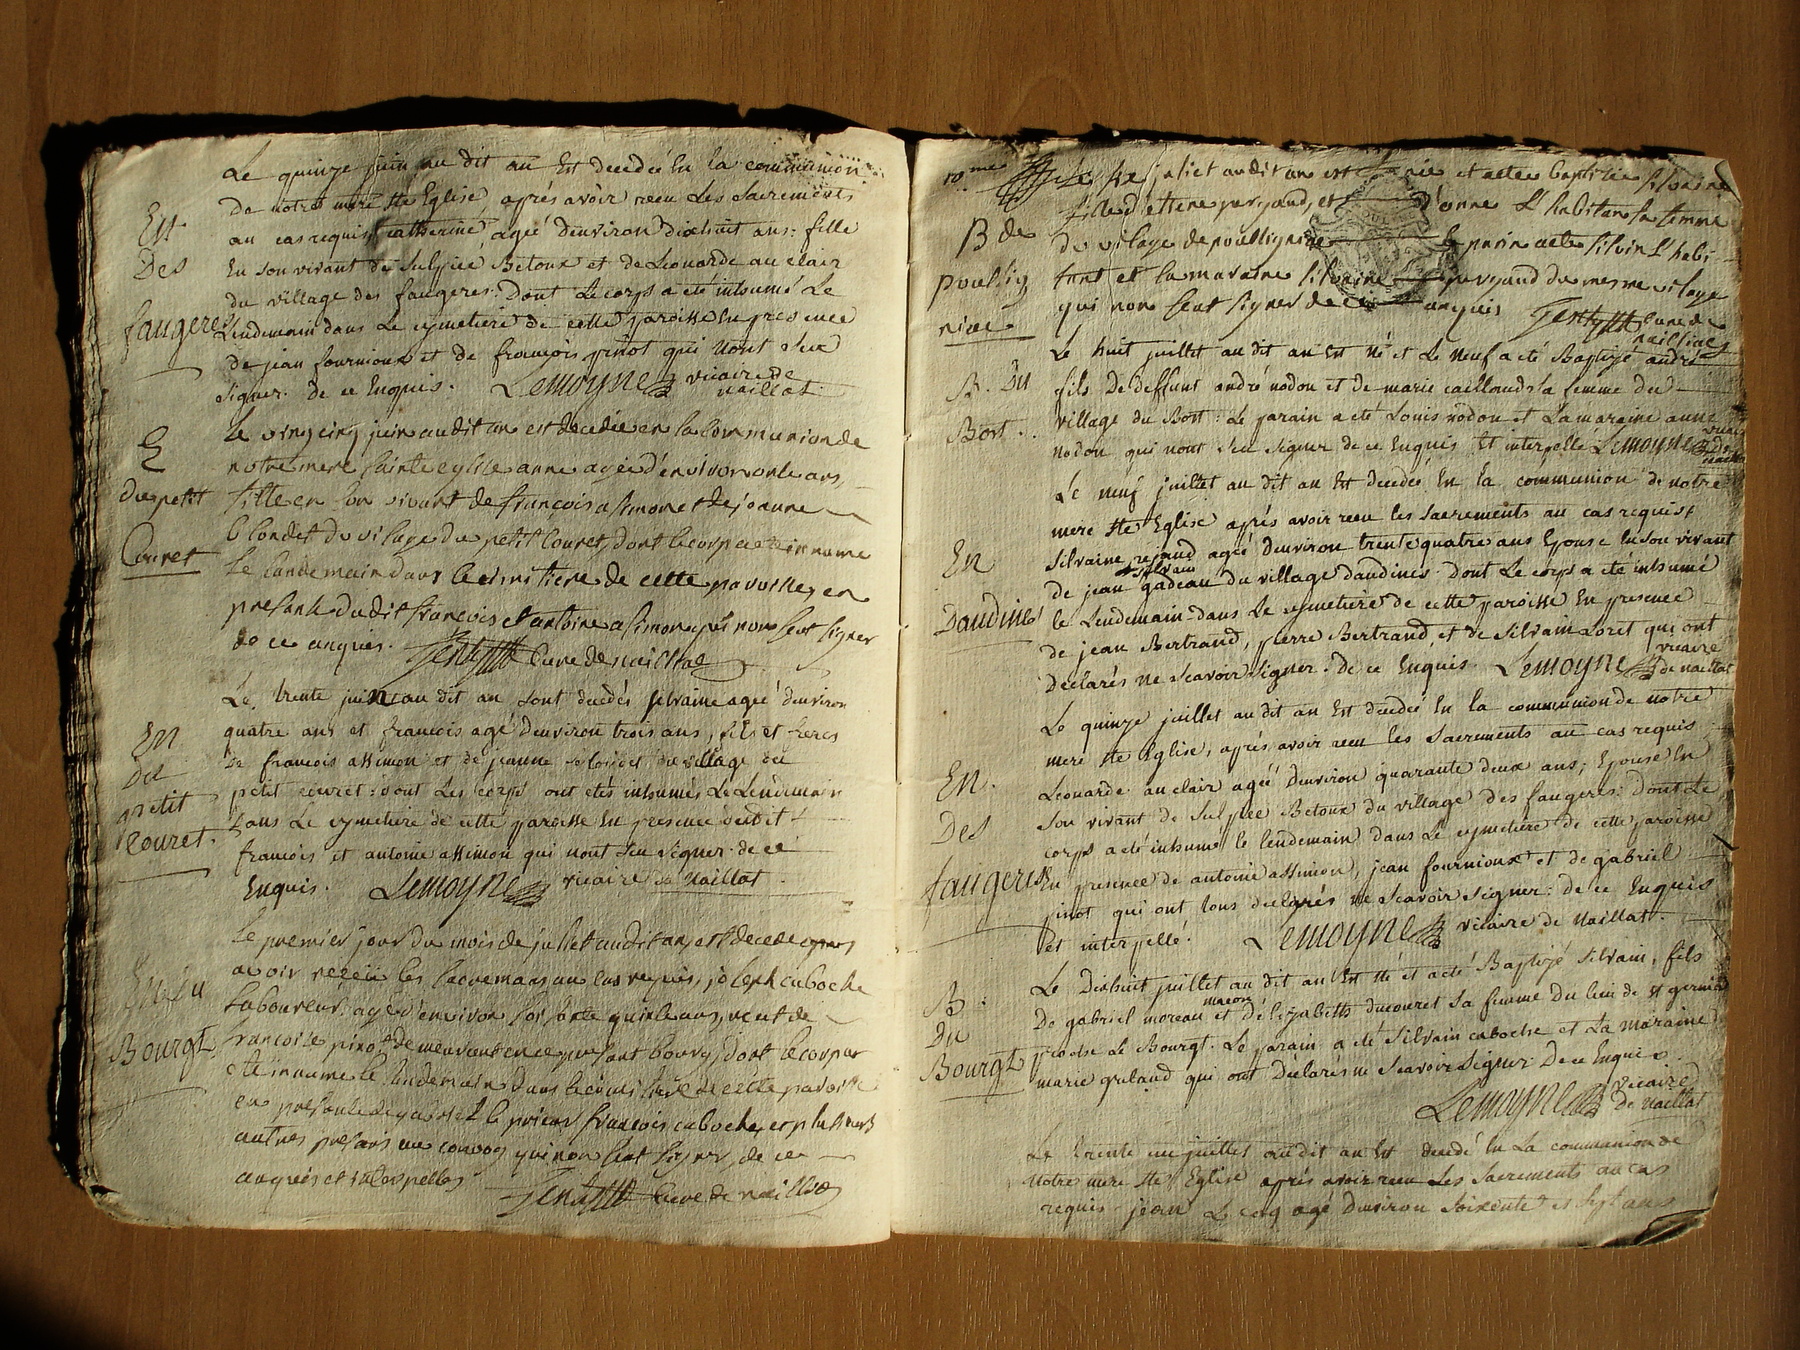 Le quinze juin au dit an Est decedeé En la communion
de notre mere Ste Eglise aprés avoir reçu Les Sacrements
Est
au cas requis catherine ageé denviron dixhuit ans: fille
Des
En son vivant de Sulpice Betoux et de Leonarde au clair
du village des faugeres: Dont Le corps a eté inhumé Le
faugeres
Lendemain dans Le cymetiere de cette paroisse En presence
de jean fournioux et de françois pinot qui nont Sceu
Signer. de ce Enquis. Lemoyne vicaire de
naillat
Le vingcinq juin audit an est decedée en la communion de
E
notre mere Sainte eglise anne agée d'environ onse ans,
Du petit
fille en son vivant de françois asimon et de jeanne
Blondet du vilage du petit Couret, dont le corp a eté innume
Couret
Le landemain dans le cimitiere de cette paroisse, en
presance dudit françois et antoine asimon qui nons seut signer
de ce anquis. Curé de naillac
Le trente juin au dit an sont decedés silvaine ageé denviron
En
quatre ans et francois agé denviron trois ans, fils et
Du
de francois assimon et de jeanne du village du
petit
petit couret: dont Les corps ont etés inhumés Le Lendemain
Couret.
dans Le cymetiere de cette paroisse En presence dudit
francois et antoine assimon qui nont sceu signer. de ce
Enquis. Lemoyne vicaire de Naillat.
Le premier jour du mois de juliet audit an, est decede apres
avoir reçeu les sacremans au cas requis, joseph caboche
Laboureur, agé d'environ soisante quinse ans, veuf de
Bourgt
francoise pinot demeurant en ce presant bourg, dont le corp a
eté innumé le landemain dans le cimitiere de cette paroisse
en presance de francois caboche, et plusieurs
autres presans au convoy qui non seut signer, de ce
anquis et interpellés
Curé de naillac
10.me
juliet audit an est et a eté baptisée silvaine
fille d'ettiene peryaud, et d'anne L'habitan sa femme
B de
du vilage de poulligniere le parin a eté silvin L'habi-
poullig
tant et la maraine silvaine peryaud du mesme vilage
niere
qui non seut signer de ce anquis curé de
naillac
Le huit juillet au dit an Est né et Le neuf a eté Baptizé andré
B. Du
fils De deffunt andré nodon et de marie caillaud sa femme du
Bost.
village du Bost: Le parain a eté Louis nodon et La maraine anne
nodon qui nont Sceu Signer de ce Enquis Et interpellé Lemoyne vicaire
de
Le neuf juillet au dit an Est decedeé En la communion de notre
mere Ste Eglise aprés avoir reçu les Sacrements au cas requis
En
silvaine ageé denviron trente quatre ans Epouse En son vivant
silvain
de jean gadeau du village daudines. Dont Le corps a eté inhumé
Daudines
le Lendemain dans Le cymetiere de cette paroisse En presence
de jean Bertrand, pierre Bertrand et de Silvain Loret qui ont
Declarés ne Scavoir Signer. De ce Enquis. Lemoyne vicaire
de naillat
Le quinze juillet au dit an Est decedeé En la communion de notre
mere Ste Eglise, aprés avoir reçu les Sacrements au cas requis
En.
Leonarde au clair ageé denviron quarante deux ans, Epouse En
Des
Son vivant de Sulpice Betoux du village des faugeres: Dont Le
corps a eté inhumé le lendemain dans Le cymetiere de cette paroisse
faugeres
En presence de antoine assimon, jean fournioux et de gabriel
pinot qui ont tous declarés ne Scavoir Signer: de ce Enquis
Et interpellé. Lemoyne vicaire de Naillat.
Le Dixhuit juillet au dit an Est né et a eté Baptizé Silvain, fils
B.
macon
De gabriel moreau et délizabetts ducouret Sa femme du lieu de St germain
Du
Le Bourgt. Le parain a eté Silvain caboche et La maraine
Bourgt
marie gruland qui ont Déclarés ne Scavoir Signer. De ce Enquis.
Lemoyne vicaire
De naillat
Le trente un juillet au dit an Est decedé En La communion de
notre mere Ste Eglise aprés avoir reçu Les Sacrements au cas
requis jean Le coq agé denviron Soixente et Sept ans